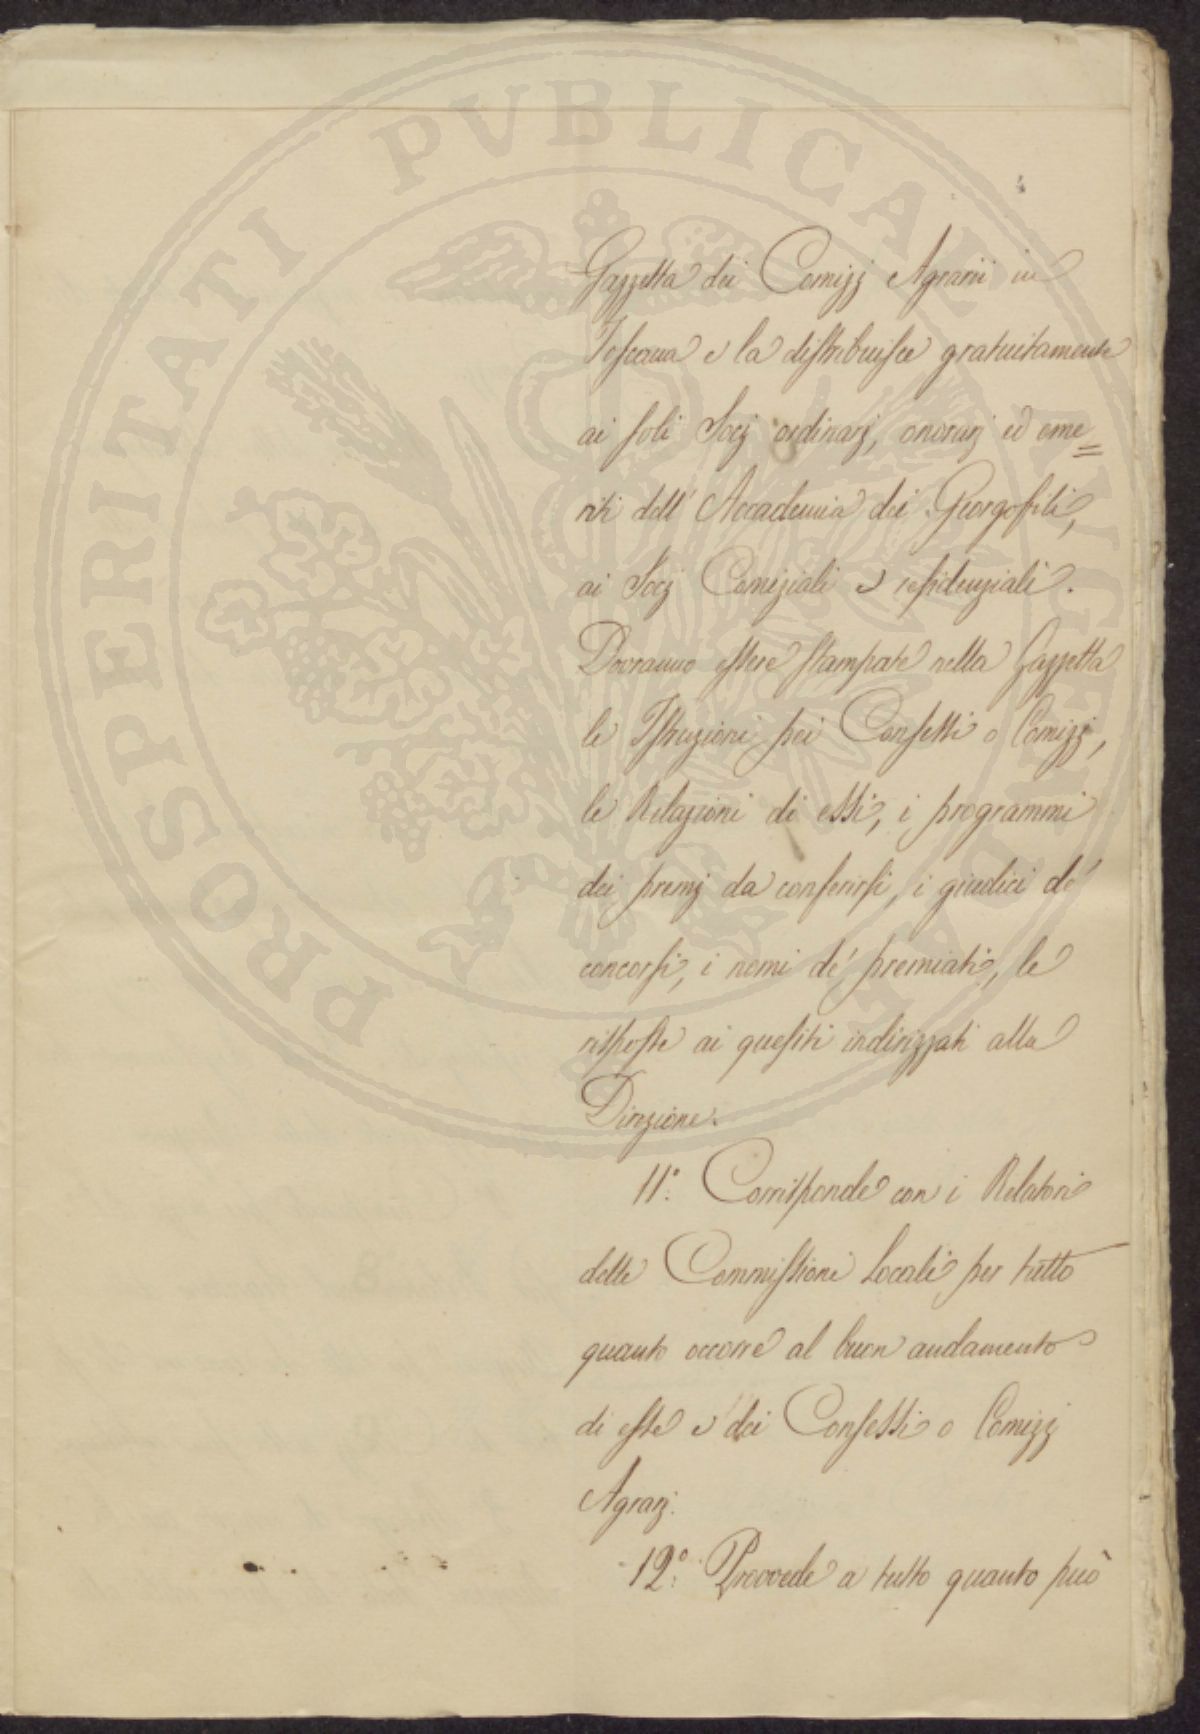 PROSPERITATI PVBLICAE AVGENDAE
Gazzetta dei Comizj Agrarii in
Toscana e la distribuisce gratuitamente
ai soli Socj ordinarj, onorarj ed eme=
riti dell' Accademia dei Georgofili,
ai Socj Comiziali e residenziali.
Dovranno essere stampate nella Gazzetta
le Istruzioni pei Consessi o Comizj,
le Relazioni di essi, i programmi
dei premj da conferirsi, i giudici de'
concorsi, i nomi de' premiati, le
risposte ai quesiti indirizzati alla
Direzione.
11.° Corrisponde con i Relatori
delle Commissioni Locali per tutto
quanto occorre al buon andamento
di esse e dei Consessi o Comizj
Agrarj.
12.° Provvede a tutto quanto può